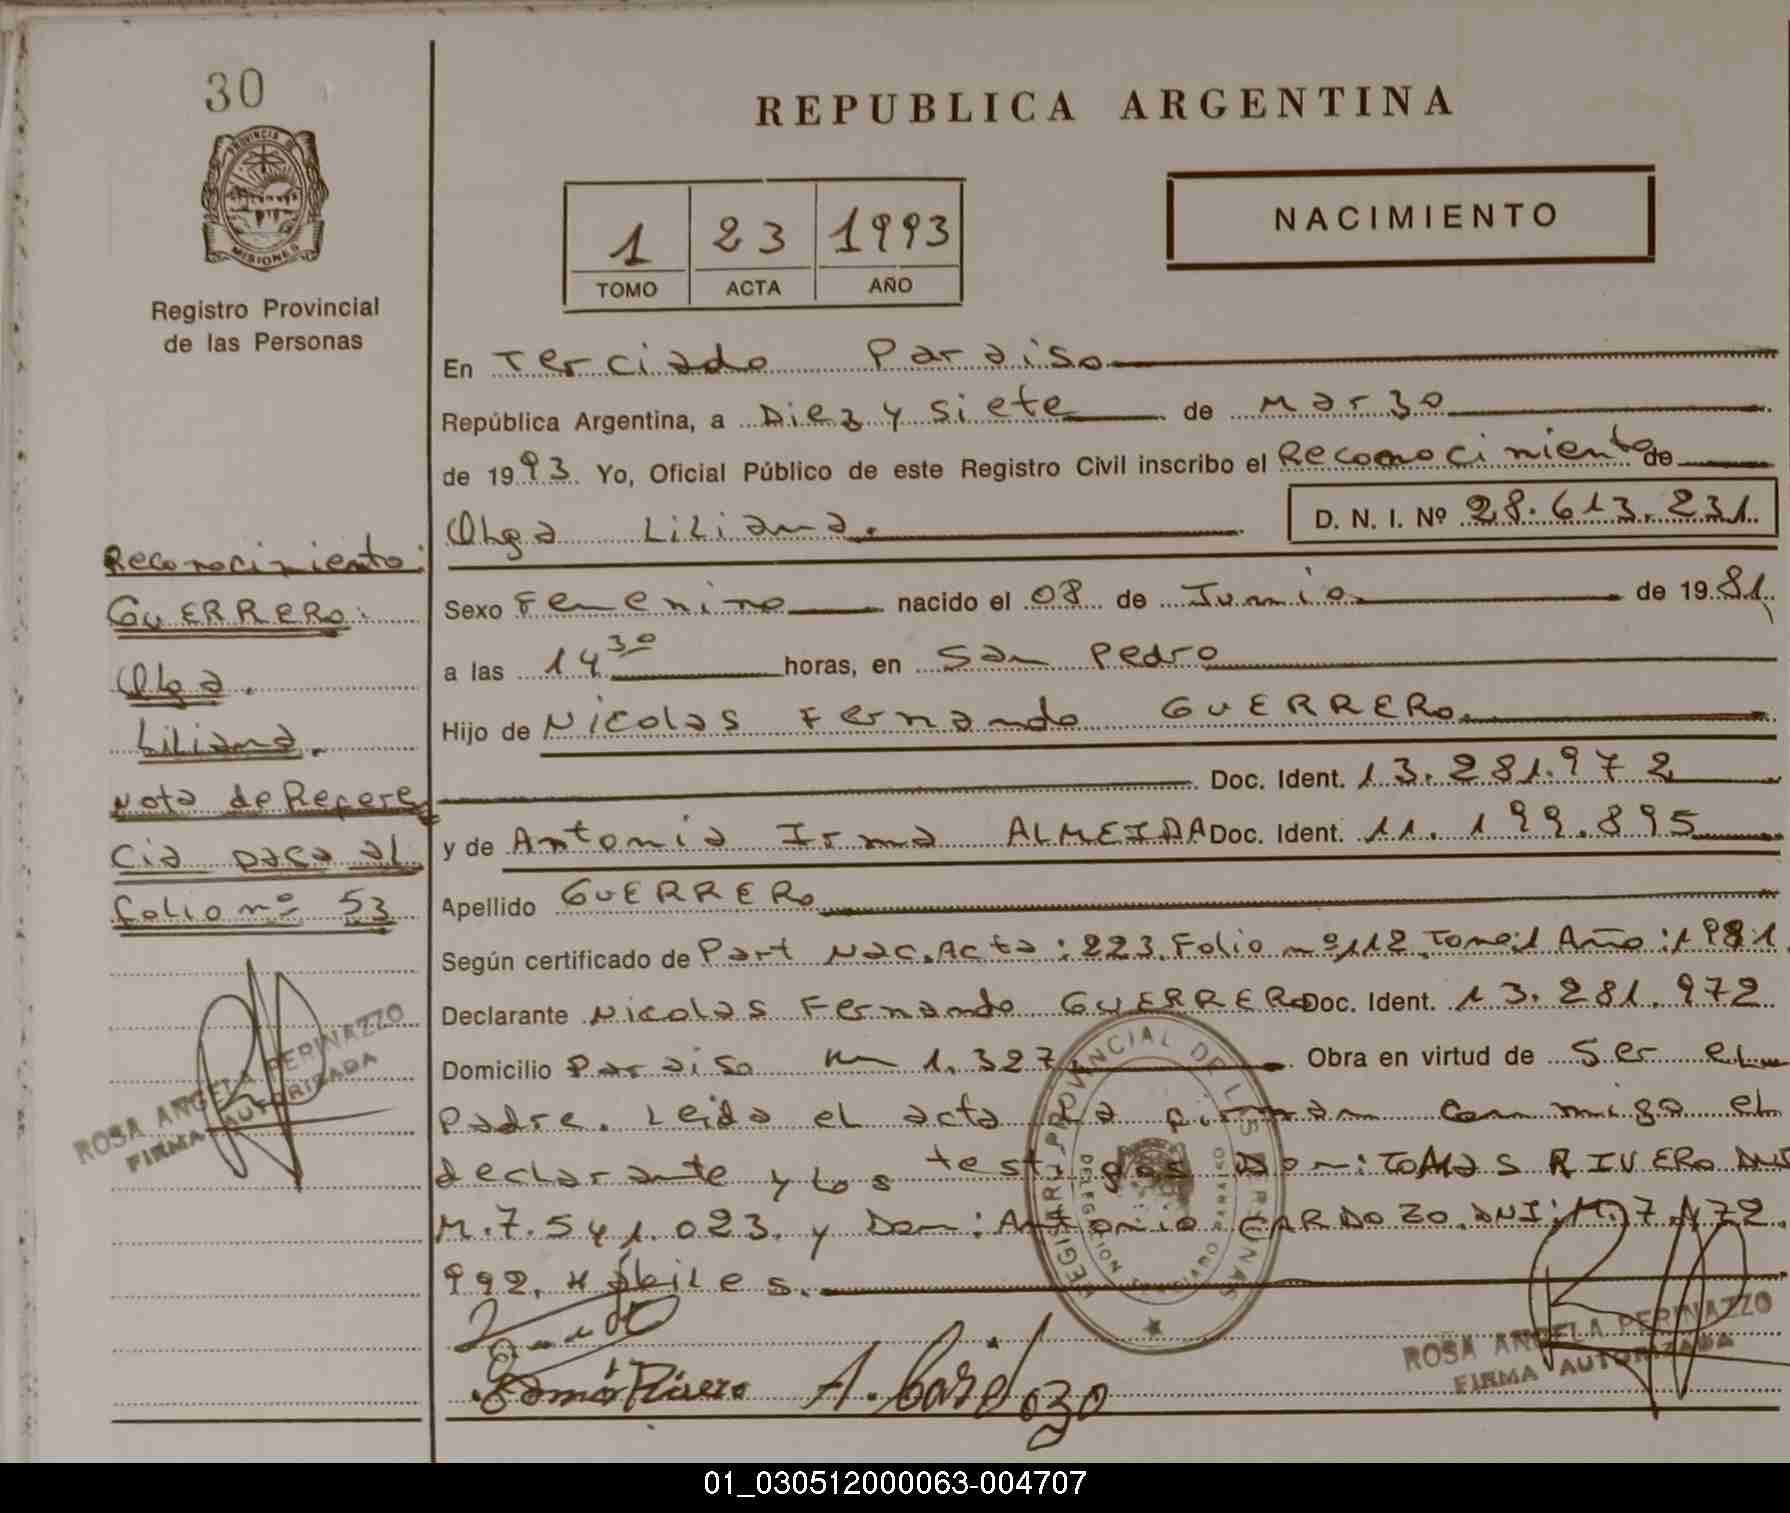 30
PROVINCIA DE
MISIONES
Registro Provincial
de las Personas
REPUBLICA ARGENTINA
1 23 1993
TOMO ACTA AÑO
NACIMIENTO
En Terciado Paraiso
República Argentina, a Diez y siete de Marzo
de 1993. Yo, Oficial Público de este Registro Civil inscribo el Reconocimiento de
Olga Liliana. D. N. I. Nº 28.613.231
Sexo Femenino nacido el 08 de Junio de 1981
a las 14 30 horas, en San Pedro
Hijo de Nicolas Fernando GUERRERO
Doc. Ident. 13.281.972
y de Antonia Irma ALMEIDA Doc. Ident. 11.199.895
Apellido GUERRERO
Según certificado de Part Nac. Acta: 223. Folio nº 112. Tomo: 1 Año: 1981
Declarante Nicolas Fernando GUERRERO Doc. Ident. 13.281.972
Domicilio Paraiso Km 1.327 Obra en virtud de ser el
Padre. Leida el acta la firman con migo el
declarante y los testigos Don: TOMAS RIVERO DNI
M.7.541.023. y Don: Antonio CARDOZO. DNI: M.7.472.
992. Hábiles.
Reconocimiento:
GUERRERO:
Olga.
Liliana.
Nota de Referen
cia pasa al
folio nº 53
ROSA ANGELA PERINAZZO
FIRMA AUTORIZADA
REGISTRO PROVINCIAL DE LAS PERSONAS
DELEGACION TERCIADO PARAISO
Rivero A. Cardozo
ROSA ANGELA PERINAZZO
FIRMA AUTORIZADA
01_030512000063-004707